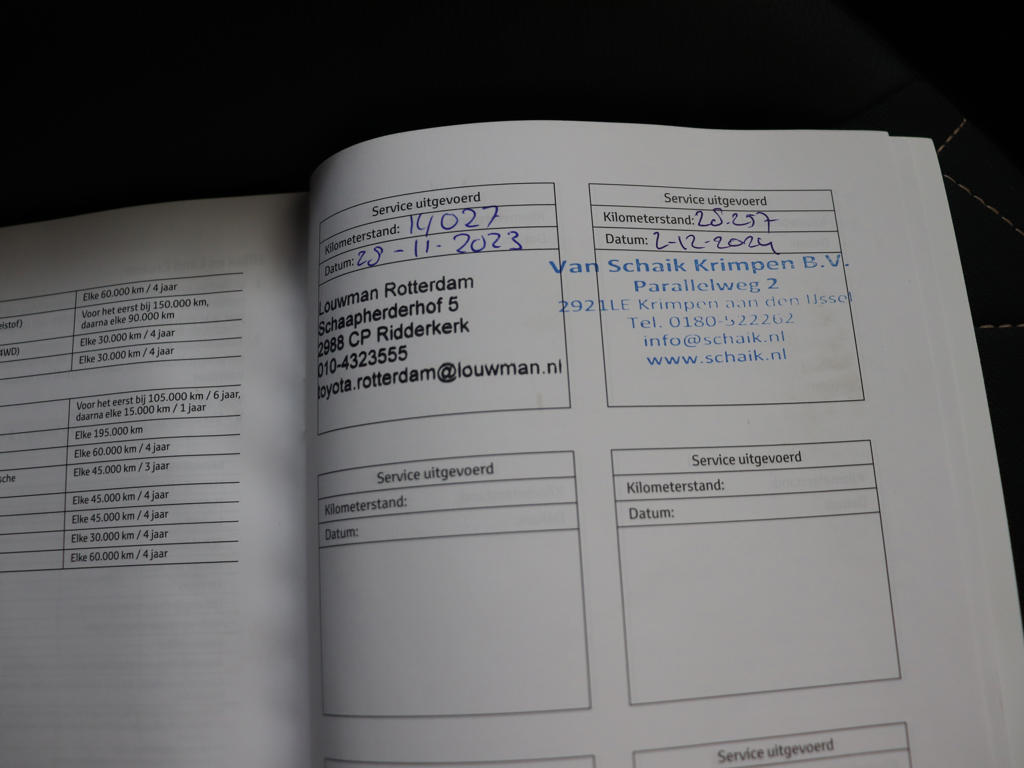 Elke 60.000 km / 4 jaar
Voor het eerst bij 150.000 km,
daarna elke 90.000 km
Elke 30.000 km / 4 jaar
4WD)
Elke 30.000 km / 4 jaar
Voor het eerst bij 105.000 km / 6 jaar,
daarna elke 15.000 km / 1 jaar
Elke 195.000 km
Elke 60.000 km / 4 jaar
sche
Elke 45.000 km / 3 jaar
Elke 45.000 km / 4 jaar
Elke 45.000 km / 4 jaar
Elke 30.000 km / 4 jaar
Elke 60.000 km / 4 jaar
Service uitgevoerd
Kilometerstand: 14027
Datum: 29-11-2023
Louwman Rotterdam
Schaapherderhof 5
2988 CP Ridderkerk
010-4323555
toyota.rotterdam@louwman.nl
Service uitgevoerd
Kilometerstand: 28.257
Datum: 2-12-2024
Van Schaik Krimpen B.V.
Parallelweg 2
2921LE Krimpen aan den IJssel
Tel. 0180-522262
info@schaik.nl
www.schaik.nl
Service uitgevoerd
Kilometerstand:
Datum:
Service uitgevoerd
Kilometerstand:
Datum:
Service uitgevoerd